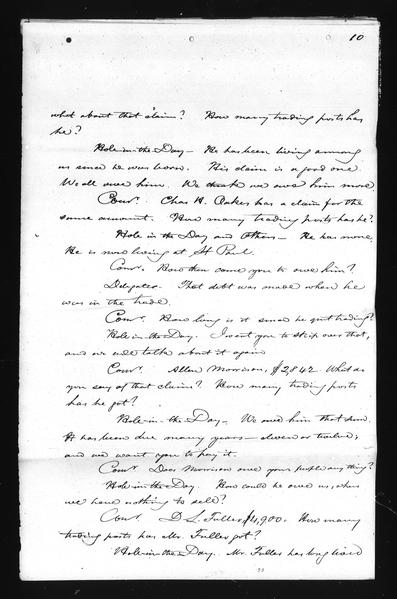 10
what about that claim? How many trading posts has
he?
Hole-in-the-Day – He has been living among
us since he was born. His claim is a good one.
We all owe him. We think we owe him more
Comr. Chas H. Oakes has a claim for the
same amount. How many trading posts has he?
Hole in the Day and others – He has none.
He is now living at St Paul.
Comr. How then came you to owe him?
Delegates. That debt was made when he
was in the trade.
Comr. How long is it since he quit trading?
Hole-in-the-Day. I want you to skip over that,
and we will talk about it again
Comr. Allan Morrison, $2,842. What do
you say of that claim? How many trading posts
has he got?
Hole-in-the-Day – We owed him that sum.
It has been due many years – eleven or twelve,
and we want you to pay it.
Comr. Does Morrison owe your people any thing?
Hole-in-the-Day. How could he owe us, when
we have nothing to sell?
Comr. D. L. Fuller, $4,900. How many
trading posts has Mr. Fuller got?
Hole-in-the-Day. Mr. Fuller has long lived